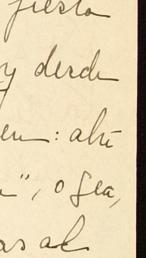 fiesta
y desde
en: ahí
a", o sea,
as al